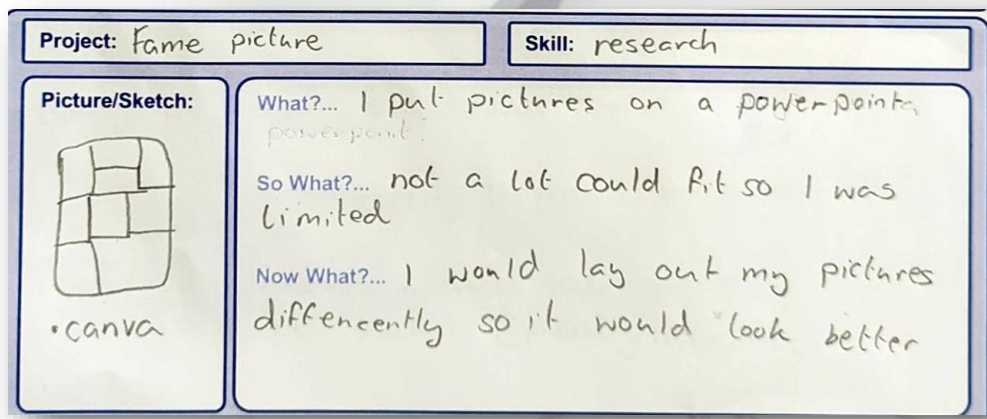 Project: Fame picture
Skill: research
Picture/Sketch:
• canva
What?... I put pictures on a powerpoint
powerpoint.
So What?... not a lot could fit so I was
limited
Now What?... I would lay out my pictures
diffencently so it would look better